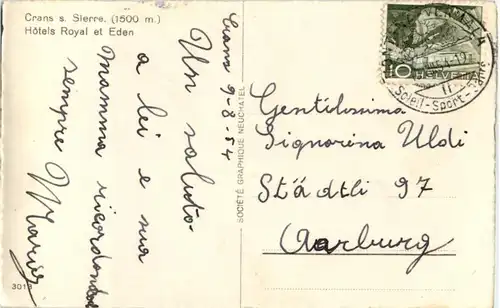 Crans s. Sierre. (1500 m.)
Hôtels Royal et Eden
Crans 9-8-54
Un saluto
a lei e sua
mamma ricordando
sempre
3013
SOCIÉTÉ GRAPHIQUE NEUCHATEL
10 HELVETIA
Soleil-Sport-
Gentilissima
Signorina Uldi
Städtli 97
Aarburg